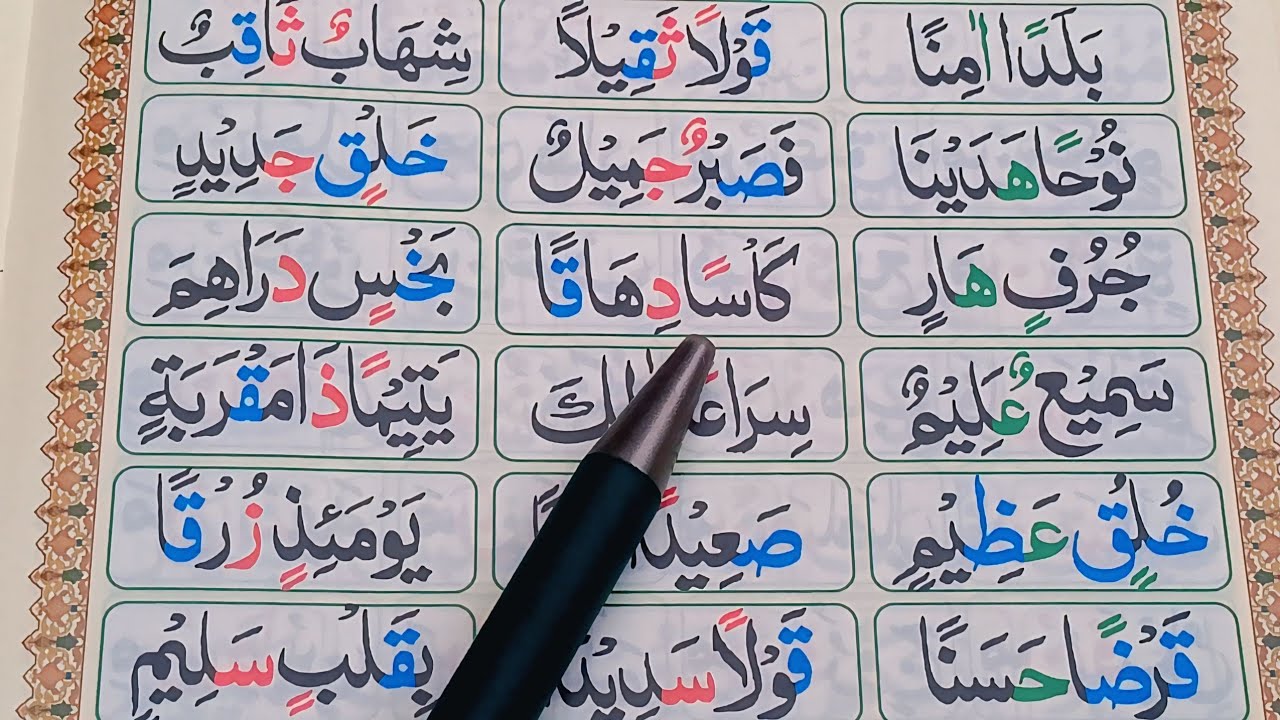 بَلَدًا اٰمِنًا قَوْلًا ثَقِيْلًا شِهَابٌ ثَاقِبٌ
نُوْحًا هَدَيْنَا فَصَبْرٌ جَمِيْلٌ خَلْقٍ جَدِيْدٍ
جُرُفٍ هَارٍ كَاْسًا دِهَاقًا بَخْسٍ دَرَاهِمَ
سَمِيْعٌ عَلِيْمٌ يَتِيْمًا ذَا مَقْرَبَةٍ
خُلُقٍ عَظِيْمٍ يَوْمَئِذٍ زُرْقًا
قَرْضًا حَسَنًا قَوْلًا بِقَلْبٍ سَلِيْمٍ